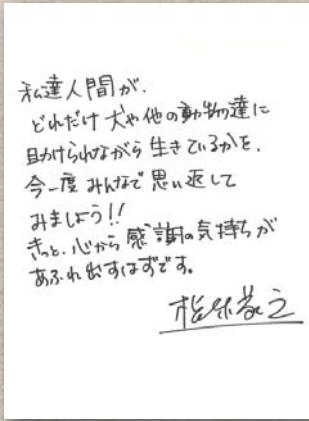 私達人間が、
どれだけ犬や他の動物達に
助けられながら生きているかを、
今一度みんなで思い返して
みましょう!!
きっと、心から感謝の気持ちが
あふれ出すはずです。